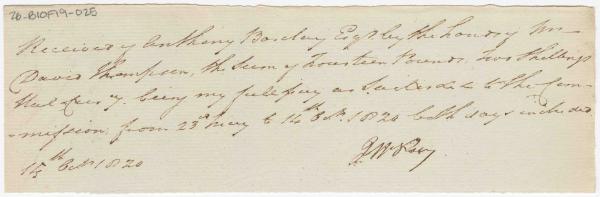 26-B10F19-025
Received of Anthony Barclay Esqr by the hands of Mr
David Thompson, the sum of fourteen Pounds, two Shillings
Hal. Curcy. being my full pay as to the Com
-mission, from 23d May to 14th Oct. 1820 both days included
15th Oct. 1820